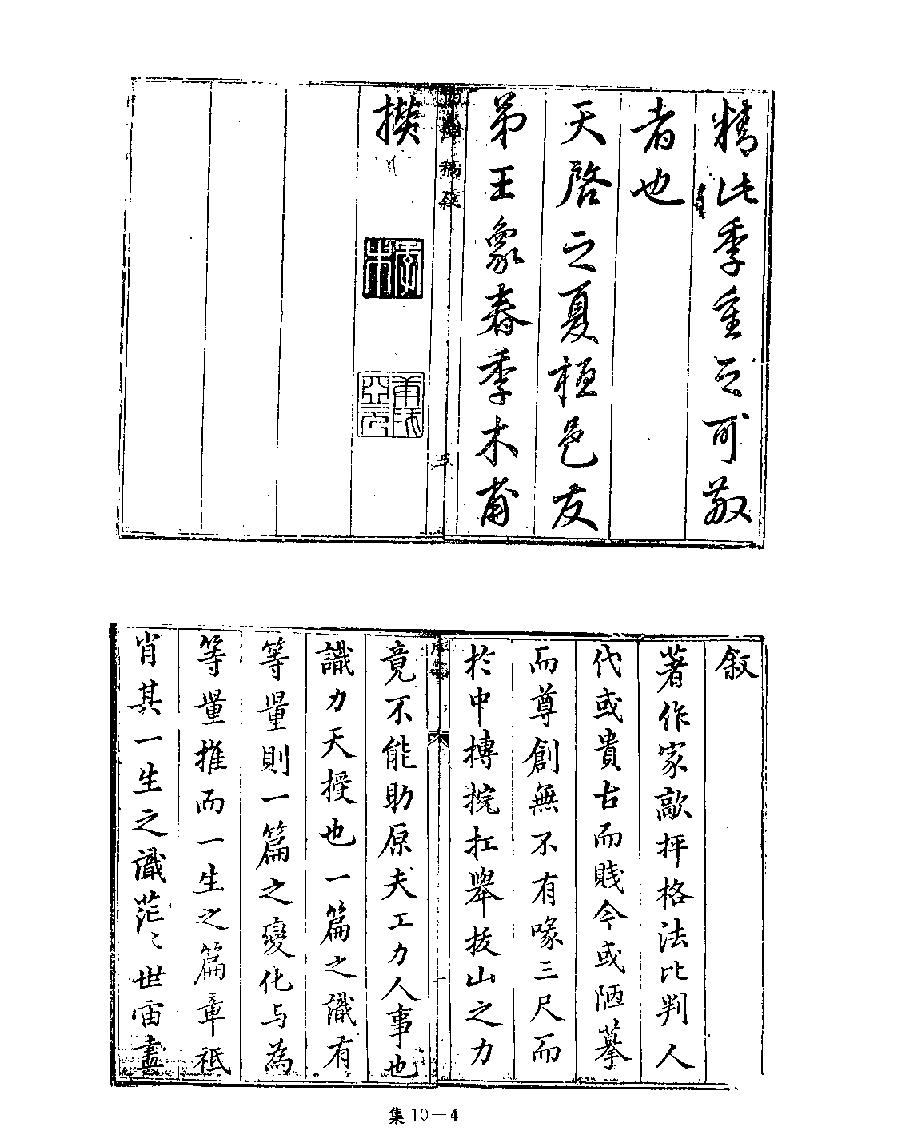 精此季重之可敬
者也
天啓之夏桓邑友
弟王象春季木甫
撰
季木
五
叙
著作家敲抨格法比判人
代或貴古而賤今或陋摹
而尊創無不有喙三尺而
於中摶捖扛舉拔山之力
竟不能助原夫工力人事也
識力天授也一篇之識有
等量則一篇之變化与為
等量推而一生之篇章祗
肖其一生之識茫〻世宙盡
集10—4